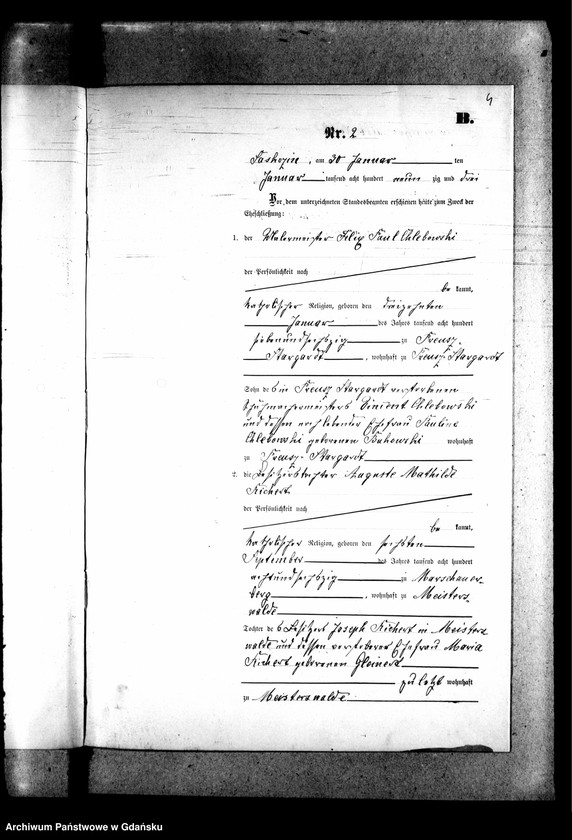 4
B.
Nr. 2
am 30 Januar ten
Januar tausend acht hundert neun zig und drei
Vor dem unterzeichneten Standesbeamten erschienen heute zum Zweck der
Eheschließung:
1. der Malermeister Felix Paul Chlebowski
der Persönlichkeit nach
be kannt,
katholischer Religion, geboren den dreizehnten
Januar des Jahres tausend acht hundert
siebenundsechszig zu Preusz.
Stargardt, wohnhaft zu Preusz. Stargardt
Sohn des in Preusz. Stargardt verstorbenen
Schuhmachermeisters Vincent Chlebowski
und dessen noch lebender Ehefrau Pauline
Chlebowski geborenen Bukowski wohnhaft
zu Preusz. Stargardt
2. die Besitzerstochter Auguste Mathilde
Richert
der Persönlichkeit nach
be kannt,
katholischer Religion, geboren den sechsten
September des Jahres tausend acht hundert
achtundsechszig zu Marschauer-
berg, wohnhaft zu Meisters-
walde
Tochter des Besitzers Joseph Richert in Meisters
walde und dessen verstorbener Ehefrau Maria
Richert geborenen
zu letzt wohnhaft
zu Meisterswalde
Archiwum Państwowe w Gdańsku